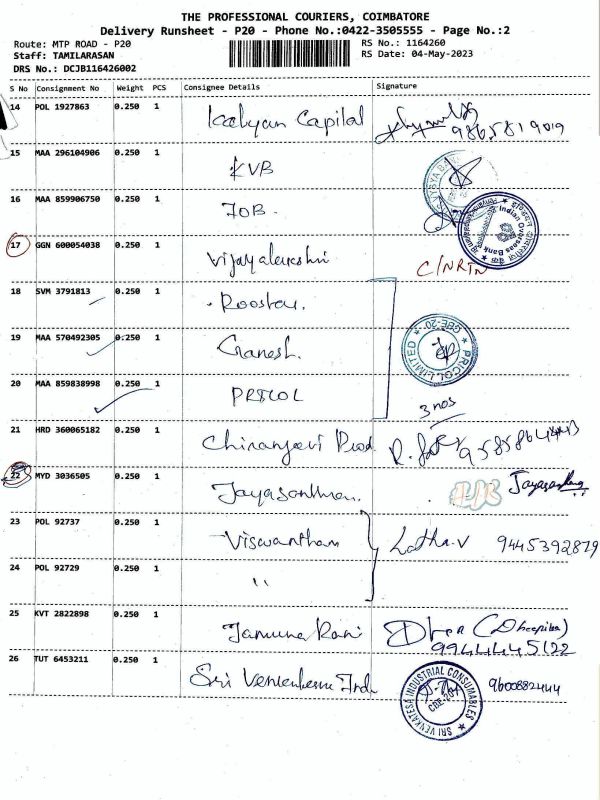 THE PROFESSIONAL COURIERS, COIMBATORE
Delivery Runsheet - P20 - Phone No.:0422-3505555 - Page No.:2
Route: MTP ROAD - P20
RS No.: 1164260
Staff: TAMILARASAN
RS Date: 04-May-2023
DRS No.: DCJB116426002
S No Consignment No Weight PCS Consignee Details Signature
14 POL 1927863 0.250 1 Kalyan Capital
9865819019
15 MAA 296104906 0.250 1 KVB
16 MAA 859906750 0.250 1 IOB.
Indian Overseas Bank
17 GGN 600054038 0.250 1 Vijayalakshmi C/NRTN
18 SVM 3791813 0.250 1 Rooster
19 MAA 570492305 0.250 1 Ganesh.
PRICOL LIMITED CBE-20
20 MAA 859838998 0.250 1 PRICOL
3 nos
21 HRD 360065182 0.250 1 Chiranjeevi
22 MYD 3036505 0.250 1 Jayasanthan.
23 POL 92737 0.250 1 Viswantham Latha.V 9445392879
24 POL 92729 0.250 1 "
25 KVT 2822898 0.250 1 Jamuna Rani (Dheepika)
9944445122
26 TUT 6453211 0.250 1 Sri Venkatesa Ind 9600882444
SRI VENKATESA INDUSTRIAL CONSUMABLES